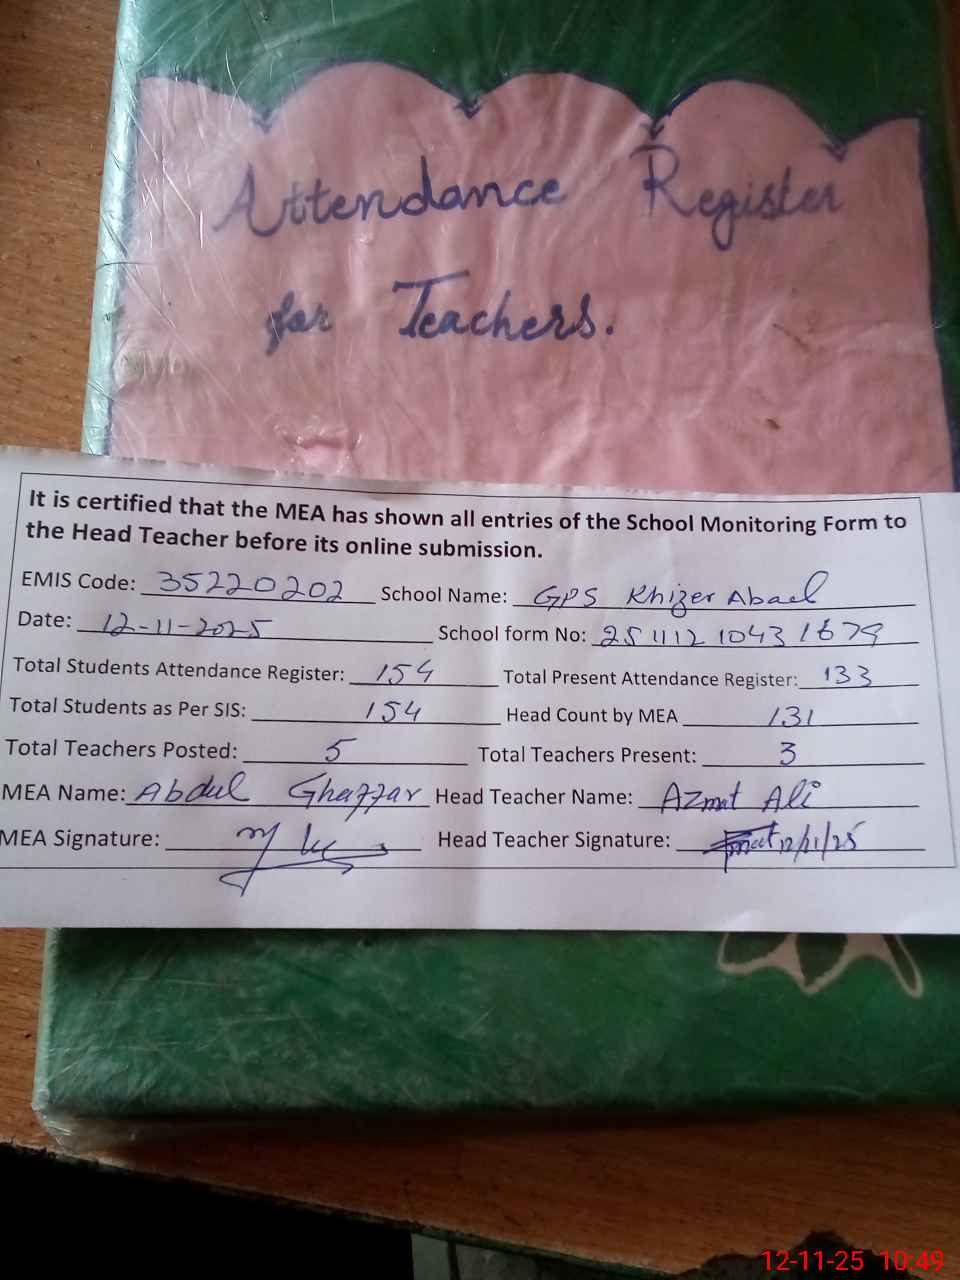 Attendance Register
for Teachers.
It is certified that the MEA has shown all entries of the School Monitoring Form to
the Head Teacher before its online submission.
EMIS Code: 35220202 School Name: GPS Khizer Abad
Date: 12-11-2025 School form No: 251112 1043 1679
Total Students Attendance Register: 154 Total Present Attendance Register: 133
Total Students as Per SIS: 154 Head Count by MEA 131
Total Teachers Posted: 5 Total Teachers Present: 3
MEA Name: Abdul Ghaffar Head Teacher Name: Azmat Ali
MEA Signature: Head Teacher Signature: 12/11/25
12-11-25 10:49